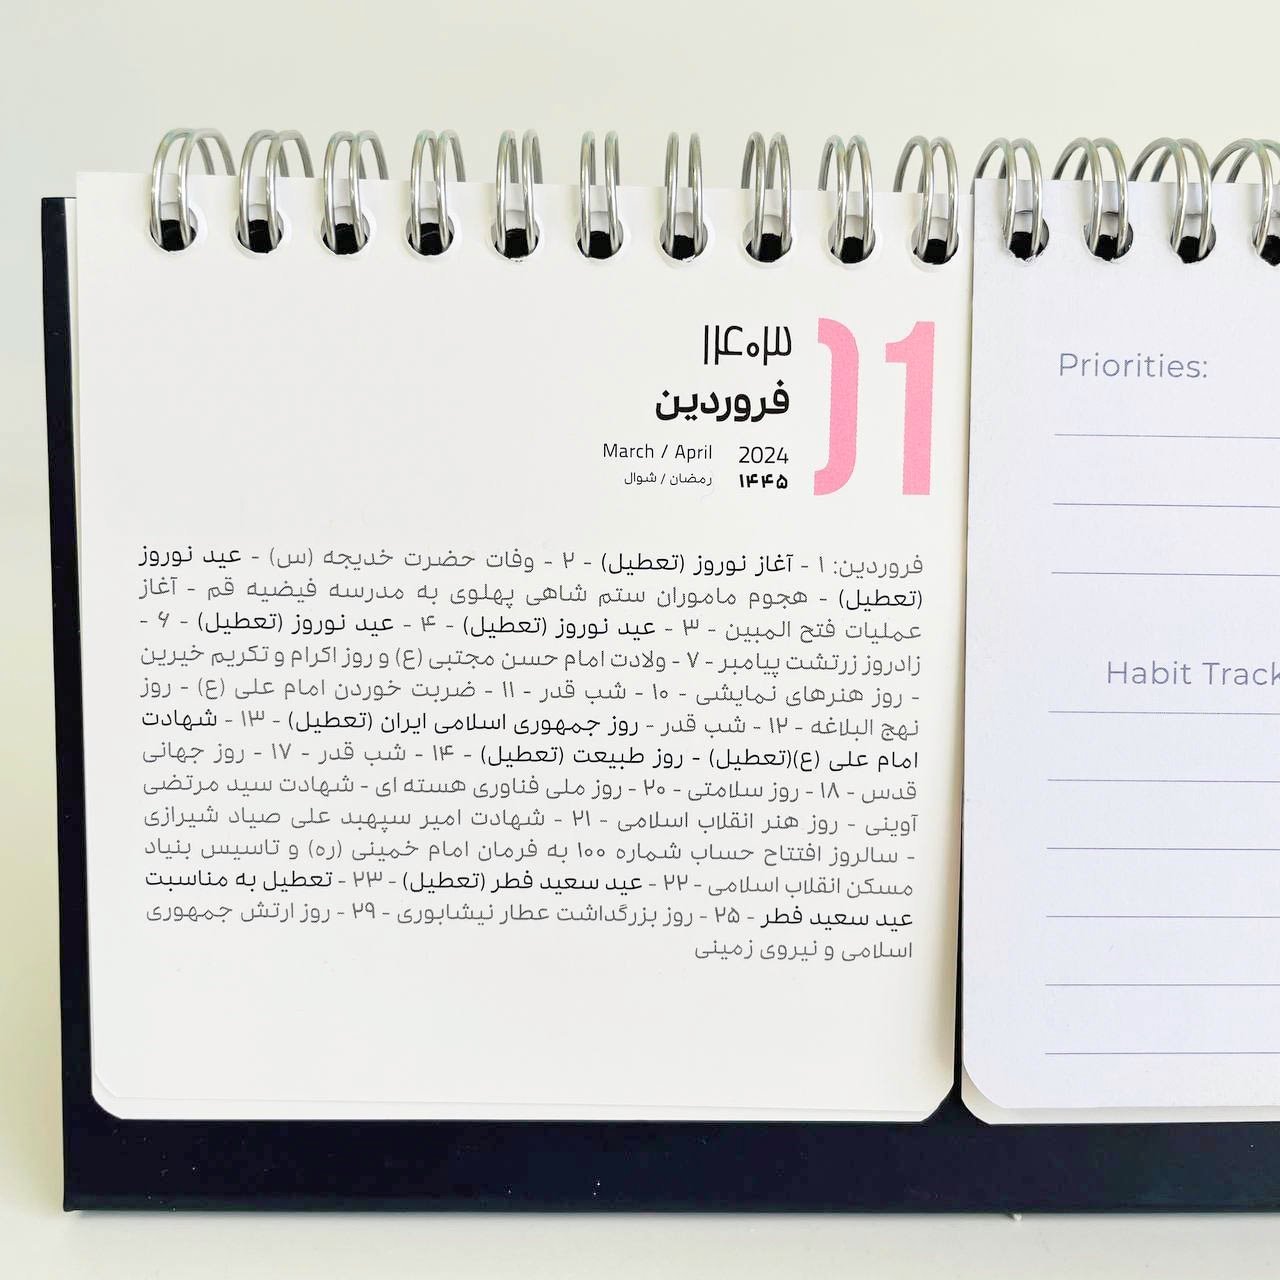 01
۱۴۰۳
فروردین
March / April 2024
رمضان / شوال ۱۴۴۵
فروردین: ۱ - آغاز نوروز (تعطیل) - ۲ - وفات حضرت خدیجه (س) - عید نوروز
(تعطیل) - هجوم ماموران ستم شاهی پهلوی به مدرسه فیضیه قم - آغاز
عملیات فتح المبین - ۳ - عید نوروز (تعطیل) - ۴ - عید نوروز (تعطیل) - ۶ -
زادروز زرتشت پیامبر - ۷ - ولادت امام حسن مجتبی (ع) و روز اکرام و تکریم خیرین
- روز هنرهای نمایشی - ۱۰ - شب قدر - ۱۱ - ضربت خوردن امام علی (ع) - روز
نهج البلاغه - ۱۲ - شب قدر - روز جمهوری اسلامی ایران (تعطیل) - ۱۳ - شهادت
امام علی (ع)(تعطیل) - روز طبیعت (تعطیل) - ۱۴ - شب قدر - ۱۷ - روز جهانی
قدس - ۱۸ - روز سلامتی - ۲۰ - روز ملی فناوری هسته ای - شهادت سید مرتضی
آوینی - روز هنر انقلاب اسلامی - ۲۱ - شهادت امیر سپهبد علی صیاد شیرازی
- سالروز افتتاح حساب شماره ۱۰۰ به فرمان امام خمینی (ره) و تاسیس بنیاد
مسکن انقلاب اسلامی - ۲۲ - عید سعید فطر (تعطیل) - ۲۳ - تعطیل به مناسبت
عید سعید فطر - ۲۵ - روز بزرگداشت عطار نیشابوری - ۲۹ - روز ارتش جمهوری
اسلامی و نیروی زمینی
Priorities:
Habit Track